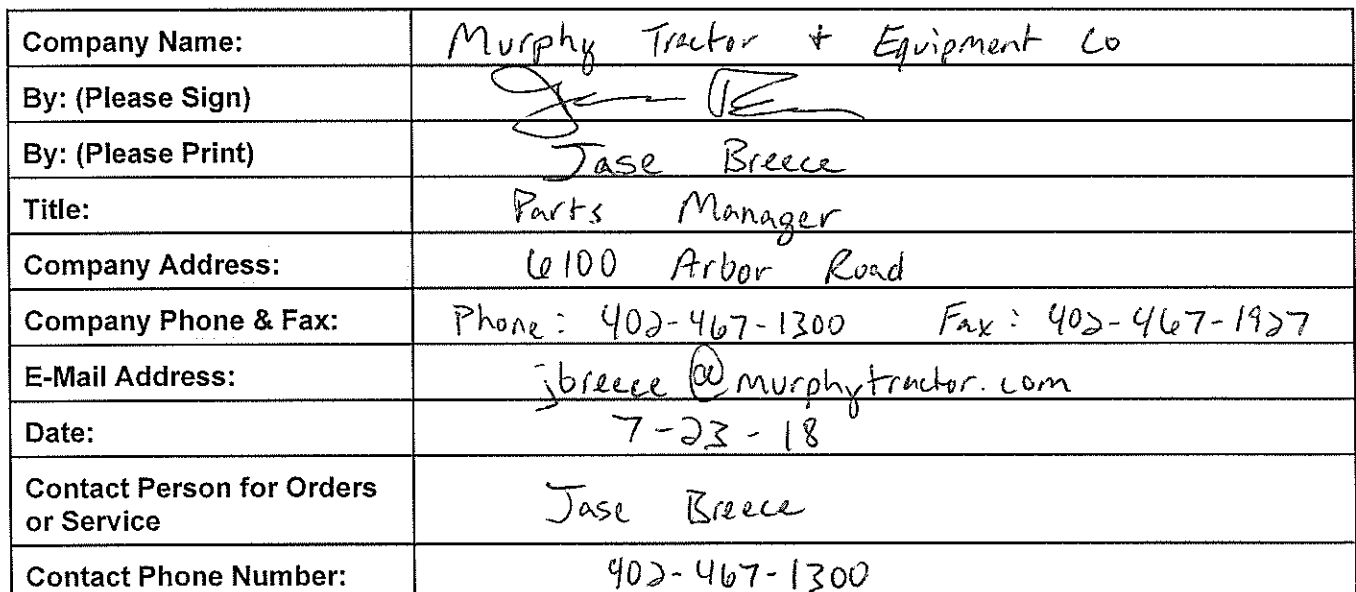 Company Name: Murphy Tractor + Equipment Co
By: (Please Sign)
By: (Please Print) Jase Breece
Title: Parts Manager
Company Address: 6100 Arbor Road
Company Phone & Fax: Phone: 402-467-1300 Fax: 402-467-1927
E-Mail Address: jbreece@murphytractor.com
Date: 7-23-18
Contact Person for Orders
or Service Jase Breece
Contact Phone Number: 402-467-1300